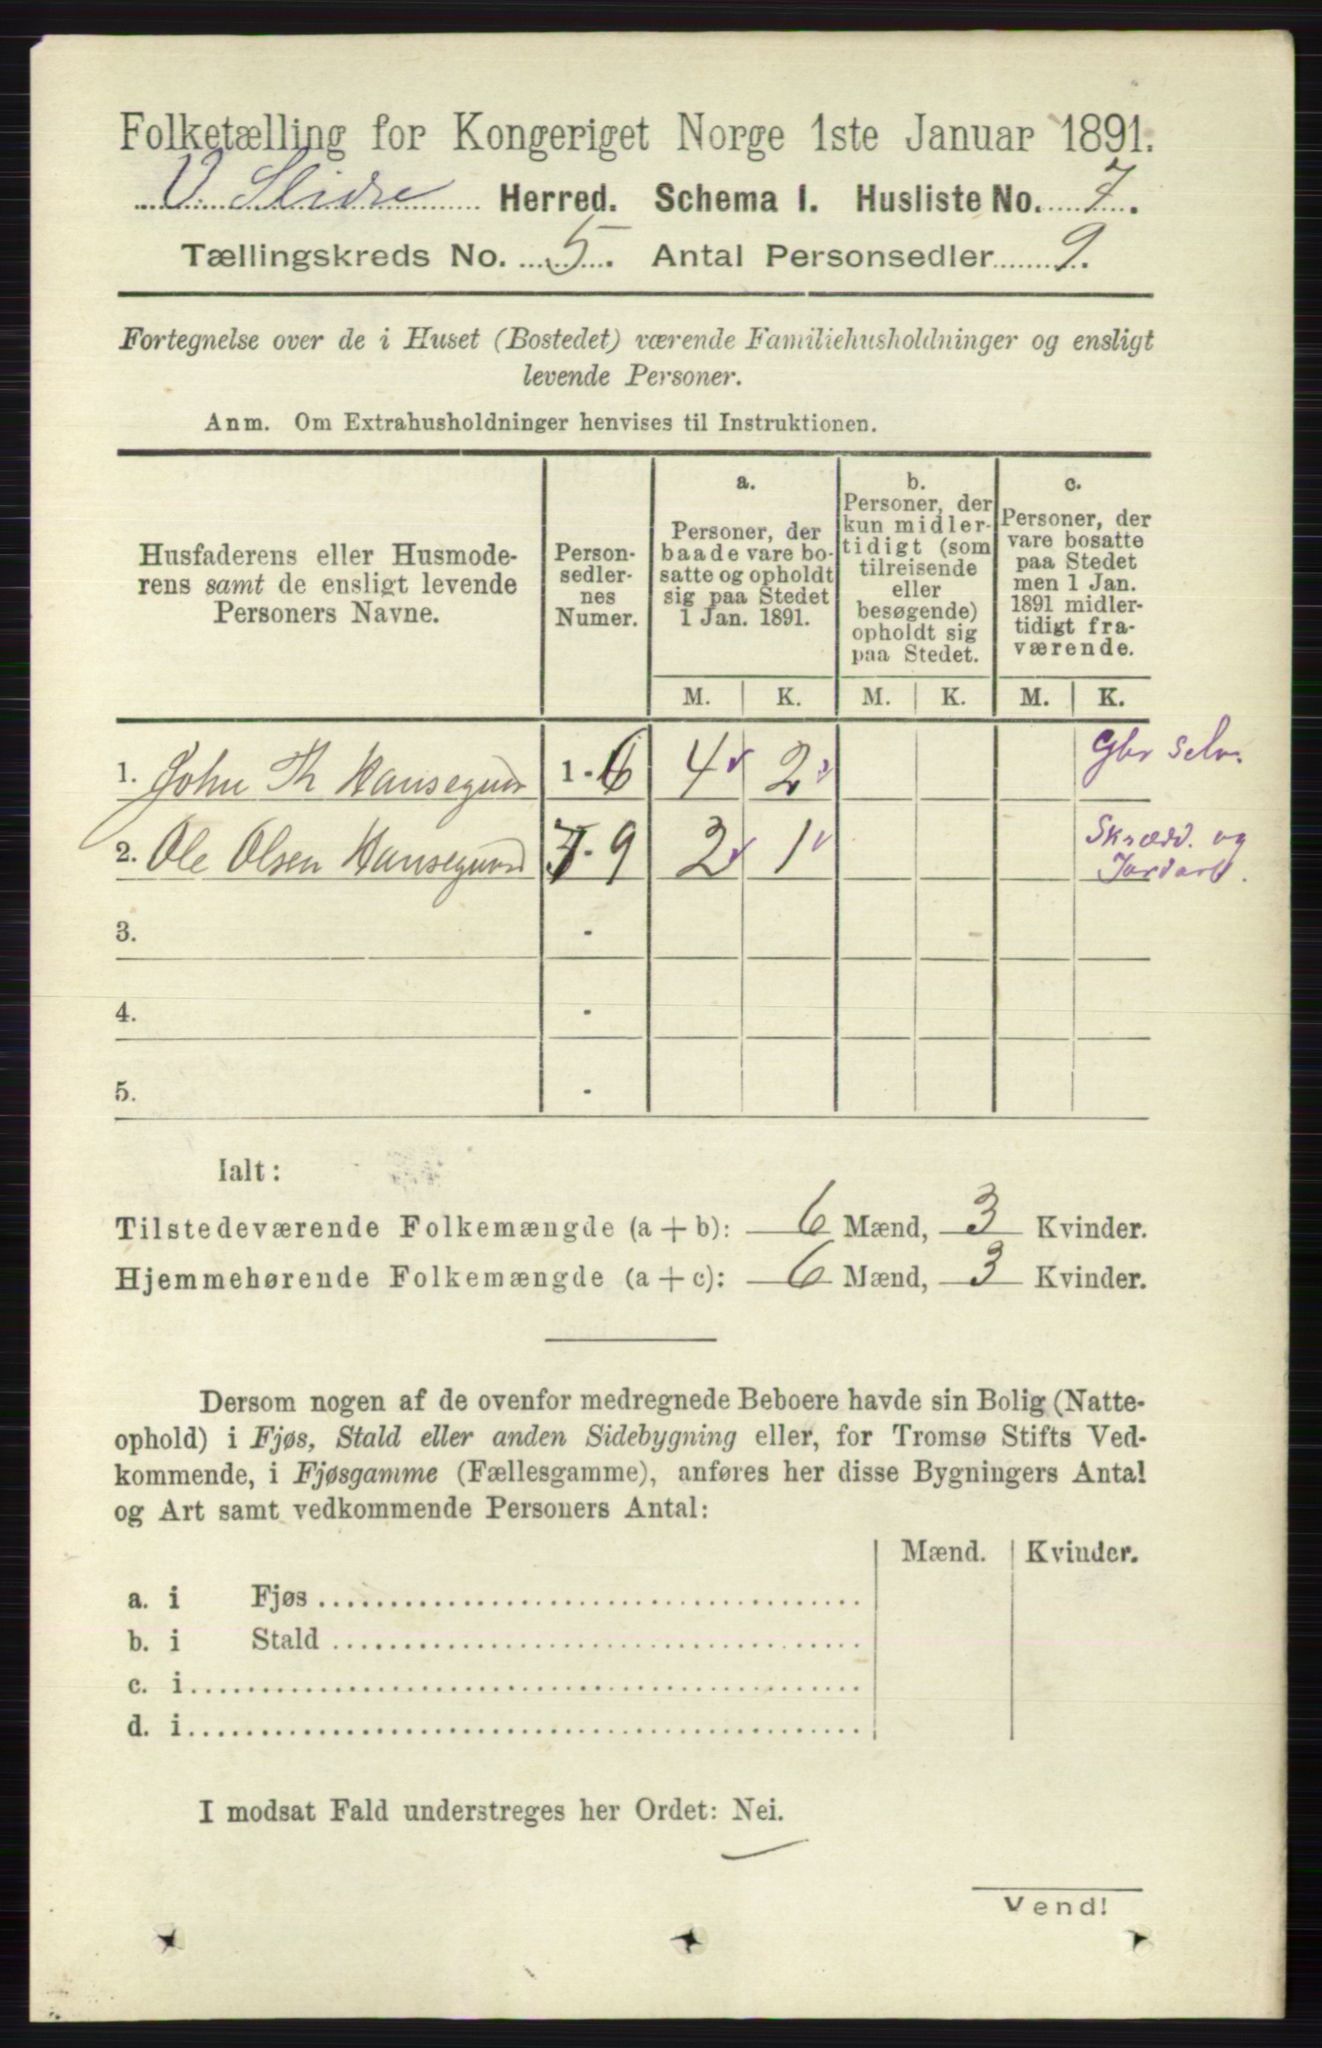 Folketælling for Kongeriget Norge 1ste Januar 1891.
V. Slidre Herred. Schema I. Husliste No. 7.
Tællingskreds No. 5. Antal Personsedler 9.
Fortegnelse over de i Huset (Bostedet) værende Familiehusholdninger og ensligt
levende Personer.
Anm. Om Extrahusholdninger henvises til Instruktionen.
Husfaderens eller Husmode-
rens samt de ensligt levende
Personers Navne.
Person-
sedler-
nes
Numer.
a.
Personer, der
baade vare bo-
satte og opholdt
sig paa Stedet
1 Jan. 1891.
b.
Personer, der
kun midler-
tidigt (som
tilreisende
eller
besøgende)
opholdt sig
paa Stedet.
c.
Personer, der
vare bosatte
paa Stedet
men 1 Jan.
1891 midler-
tidigt fra-
værende.
M. K. M. K. M. K.
1. John Th Hansegard 1 - 6 4 2 Gbr Selv.
2. Ole Olsen Hansegaard 7 - 9 2 1 Skrædd. og
Jordarb.
3. -
4. -
5. -
Ialt:
Tilstedeværende Folkemængde (a + b): 6 Mænd, 3 Kvinder.
Hjemmehørende Folkemængde (a + c): 6 Mænd, 3 Kvinder.
Dersom nogen af de ovenfor medregnede Beboere havde sin Bolig (Natte-
ophold) i Fjøs, Stald eller anden Sidebygning eller, for Tromsø Stifts Ved-
kommende, i Fjøsgamme (Fællesgamme), anføres her disse Bygningers Antal
og Art samt vedkommende Personers Antal:
Mænd. Kvinder.
a. i Fjøs
b. i Stald
c. i
d. i
I modsat Fald understreges her Ordet: Nei.
Vend!